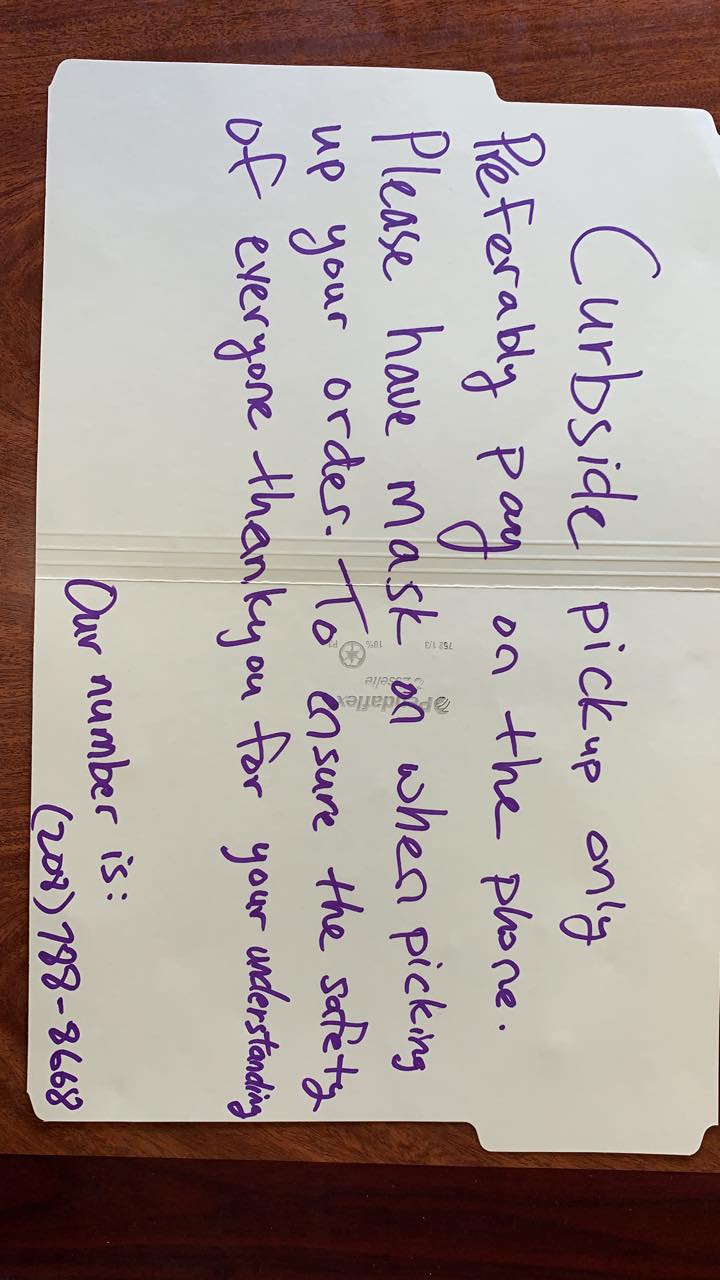 Curbside pickup only
Preferably pay on the phone.
Please have mask on when picking
up your order. To ensure the safety
of everyone thankyou for your understanding
Our number is:
(208) 788-8668
Pendaflex
Esselte
752 1/3
10%